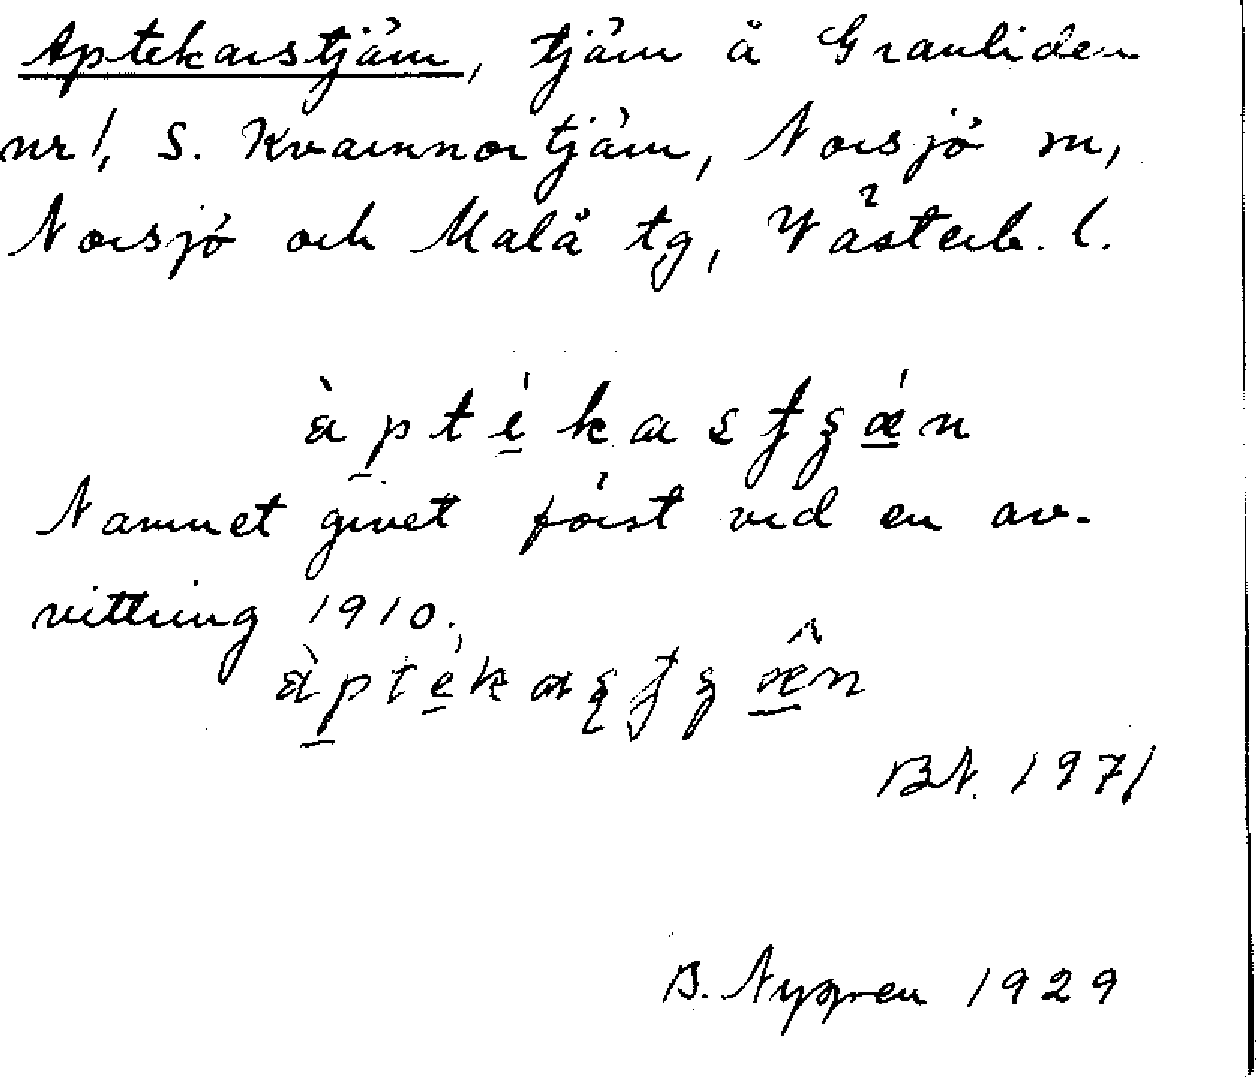 Aptekarstjärn, tjärn å Granliden
nr 1, S. Kvarnnortjärn, Norsjö sn,
Norsjö och Malå tg, Västerb. l.
Namnet givet först vid en av-
vittring 1910.
BN. 1971
B. Nygren 1929